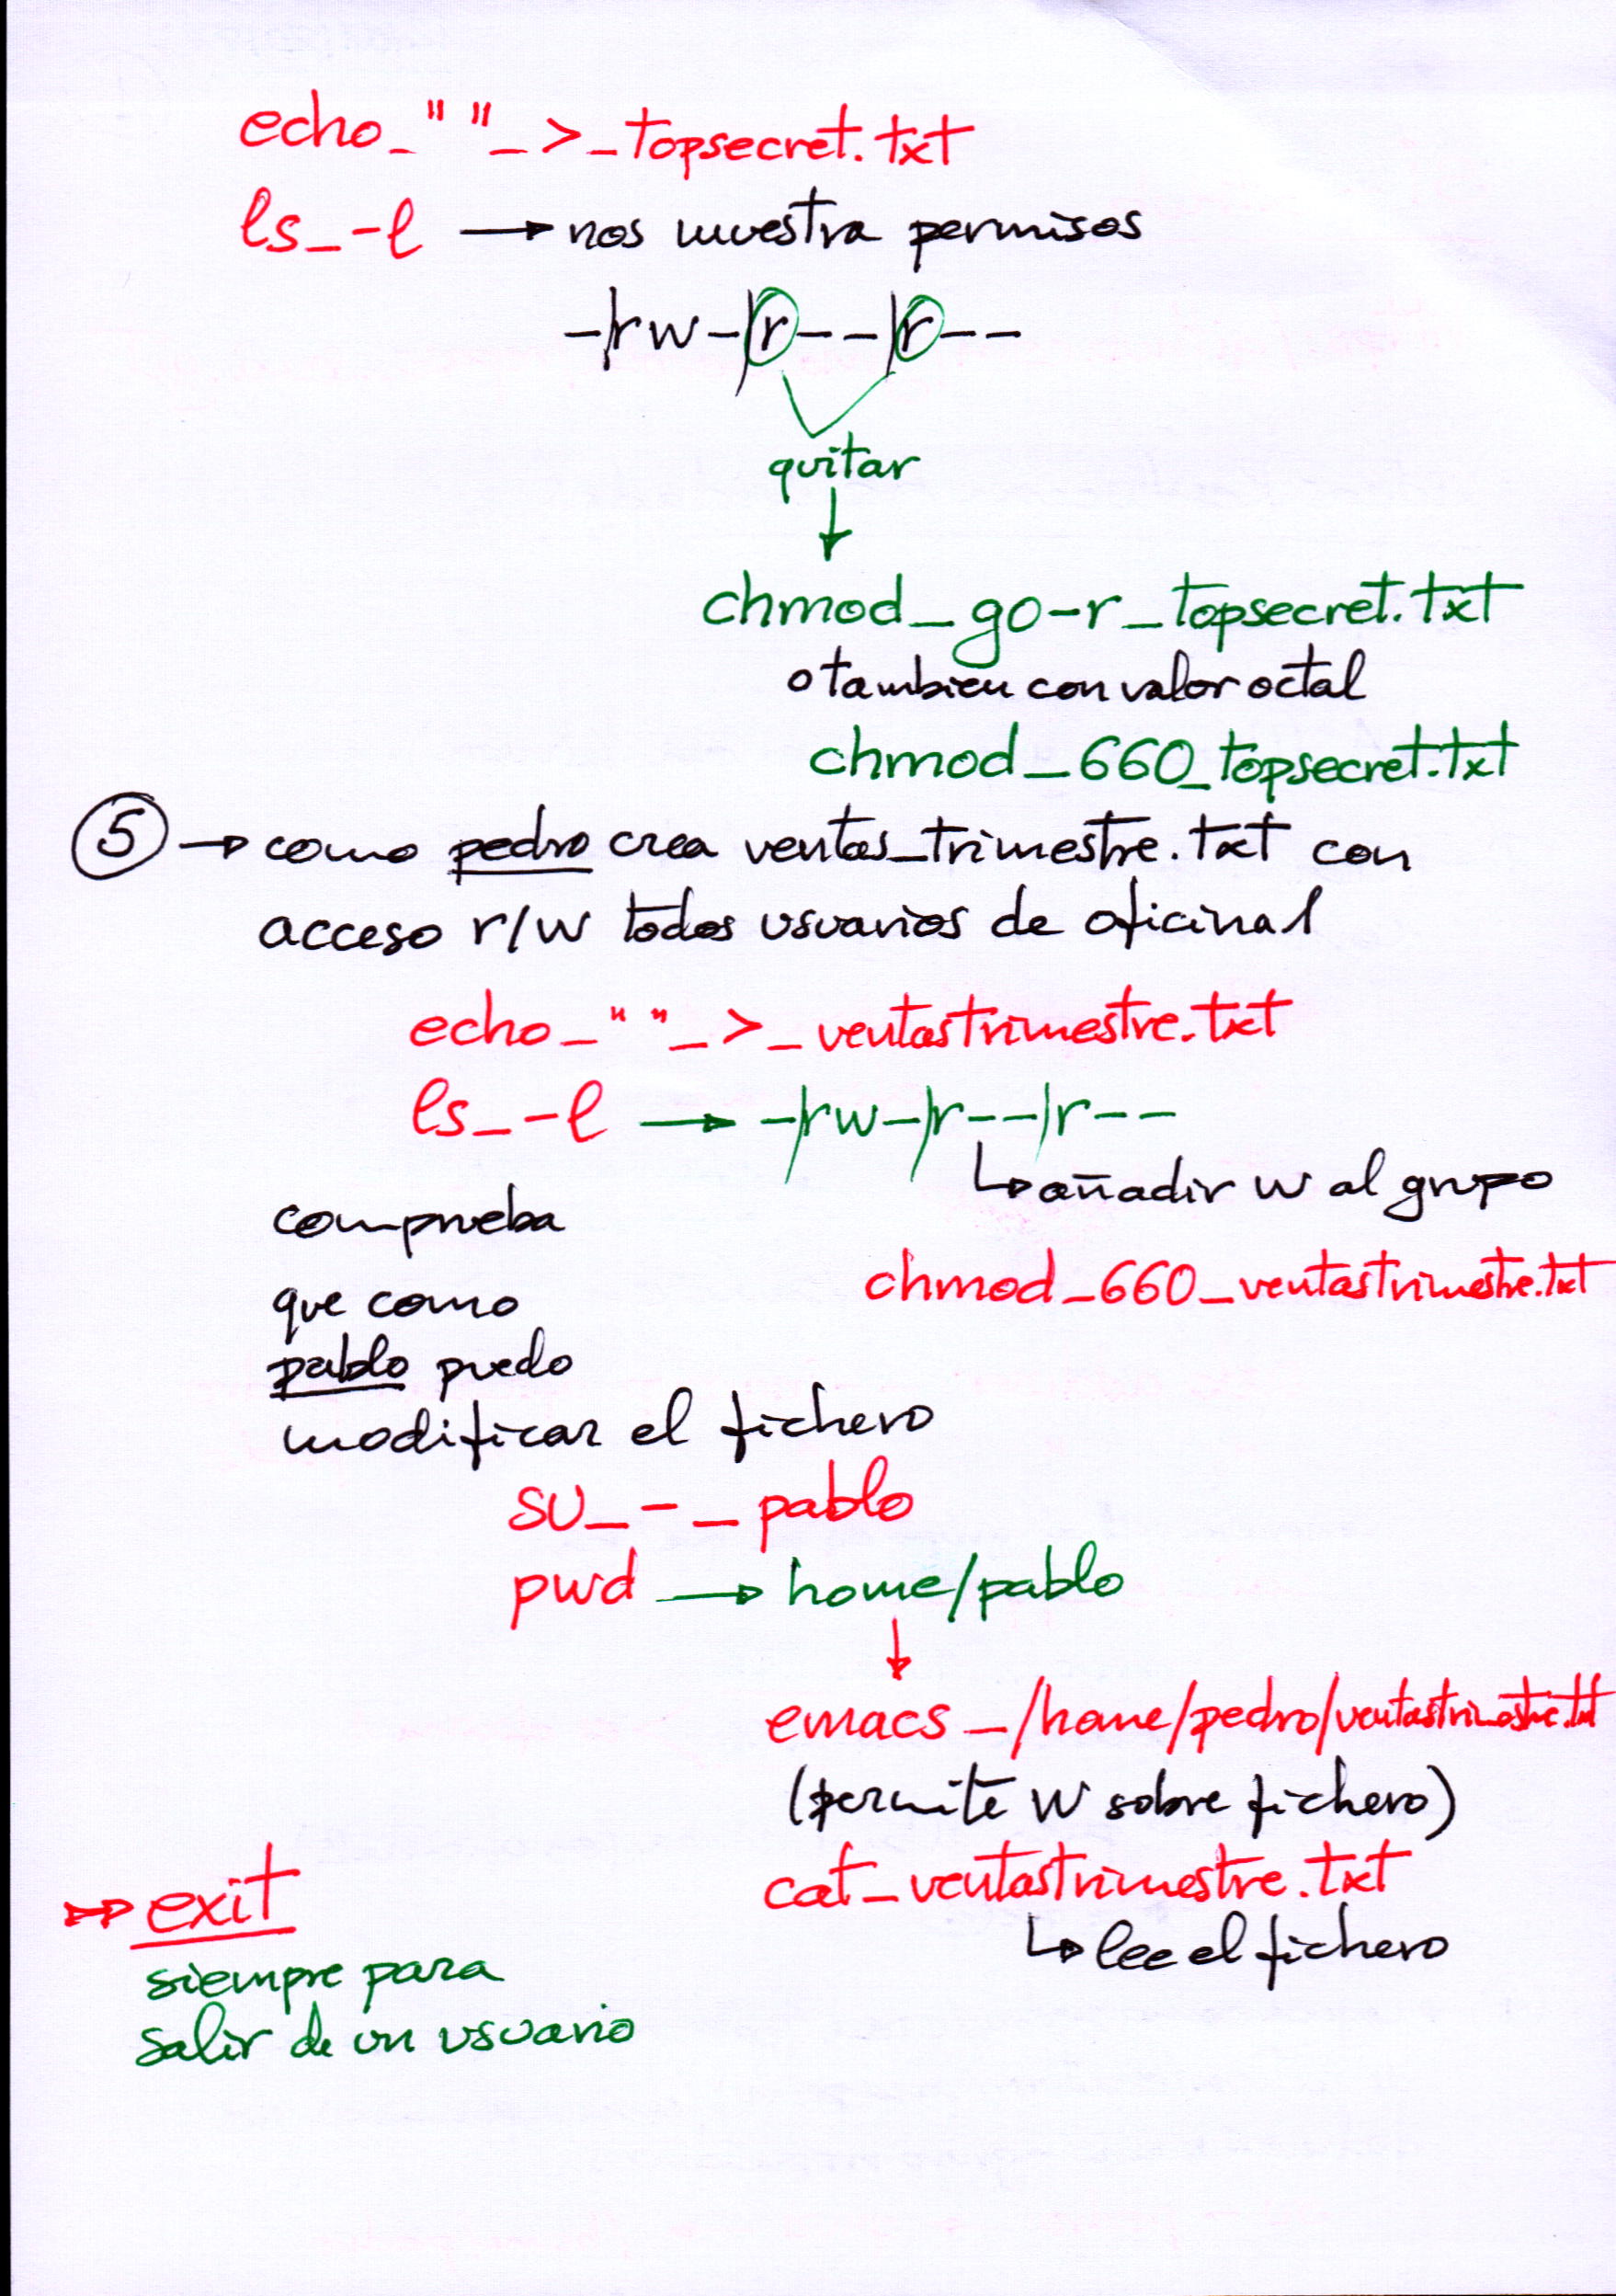 echo_" "_>_topsecret.txt
ls_-l → nos muestra permisos
-|rw-|r--|r--
quitar
chmod_go-r_topsecret.txt
o tambien con valor octal
chmod_660_topsecret.txt
5 → como pedro crea ventas_trimestre.txt con
acceso r/w todos usuarios de oficina1
echo_" "_>_ventastrimestre.txt
ls_-l → -|rw-|r--|r--
↳ añadir w al grupo
comprueba
chmod_660_ventastrimestre.txt
que como
pablo puedo
modificar el fichero
su_-_pablo
pwd → home/pablo
emacs_/home/pedro/ventastrimestre.txt
(permite W sobre fichero)
cat_ventastrimestre.txt
→ exit
↳ lee el fichero
siempre para
salir de un usuario